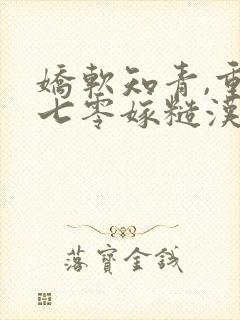 嬌軟知青,重
七零嫁糙漢
落寶金錢